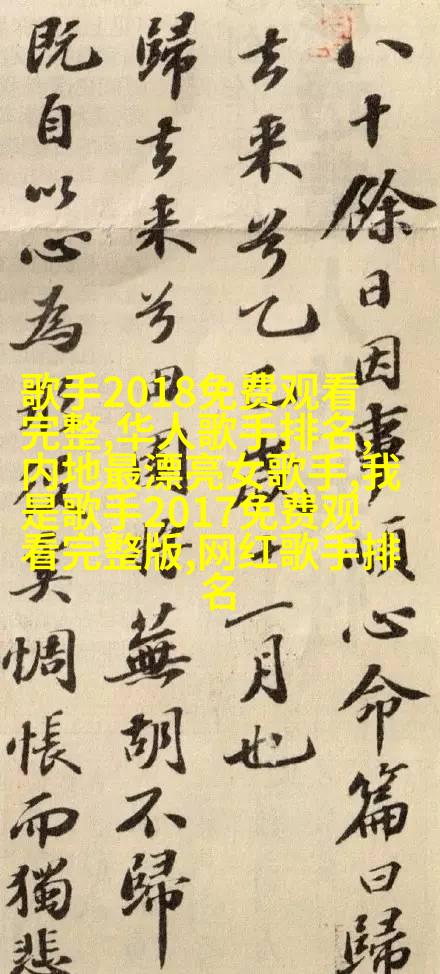 八十餘日因事順心命篇曰歸
去来兮乙巳一月也
歸去来兮田園将蕪胡不歸
既自以心為奚惆悵而獨悲
歌手2018免费观看
完整,华人歌手排名,
内地最漂亮女歌手,我
是歌手2017免费观
看完整版,网红歌手排
名